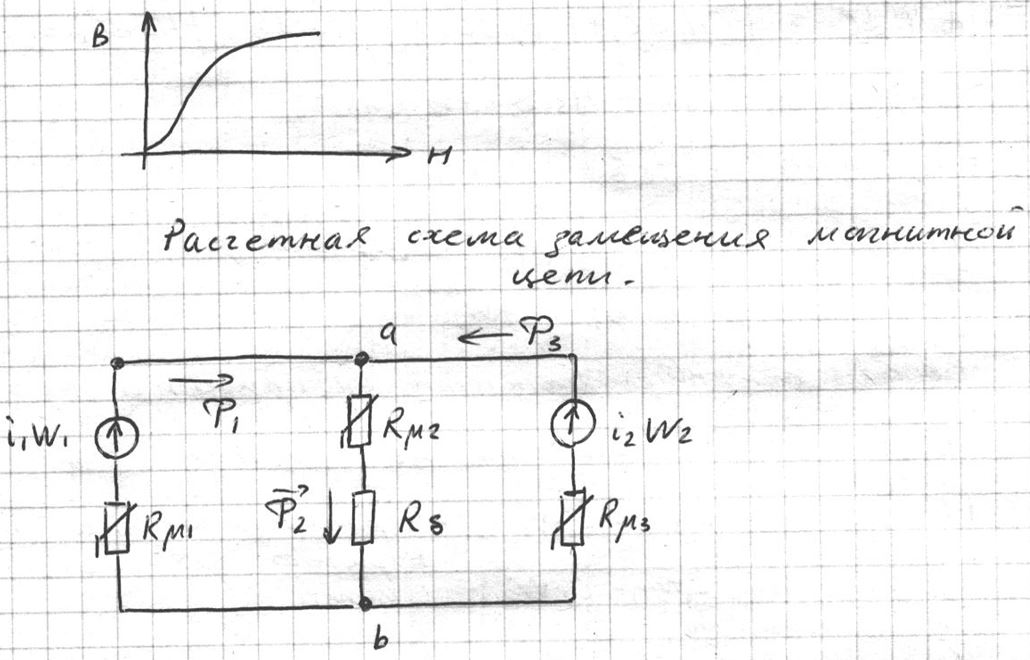 B
H
Расчетная схема замещения магнитной
цепи.
a
Ф₃
Ф₁
i₁W₁
Rμ₂
i₂W₂
Rμ₁
Ф₂
Rδ
Rμ₃
b